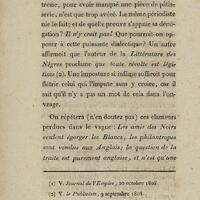 rent, pour avoir manqué une pièce de pâtis-
serie, n'est que trop avéré. Le même périodiste
nie le fait; et de quelle preuve s'appuie sa déné-
gation? Il n'y croit pas! Que pourroit-on op-
poser à cette puissante dialectique? Un autre
affirmoit que l'auteur de la Littérature des
Nègres proclame que toute révolte est légi-
time (2). Une imposture si infâme suffiroit pour
flétrir celui qui l'impute sans y croire, car il
sait qu'il n'y a pas un mot de cela dans l'ou-
vrage.
On répétera (n'en doutez pas) ces clameurs
perdues dans le vague: Les amis des Noirs
veulent égorger les Blancs, les philantropes
sont vendus aux Anglais; la question de la
traite est purement anglaise, et n'est qu'une
(1) V. Journal de l'Empire, 20 octobre 1808.
(2) V. le Publiciste, 9 septembre 1808.